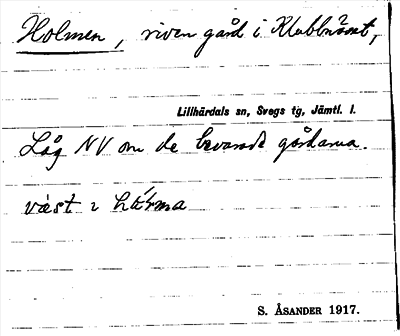 Holmen, riven gård i Klubbnäset,
Lillhärdals sn, Svegs tg, Jämtl. l.
Låg NV om de bevarade gårdarna.
väst
S. ÅSANDER 1917.